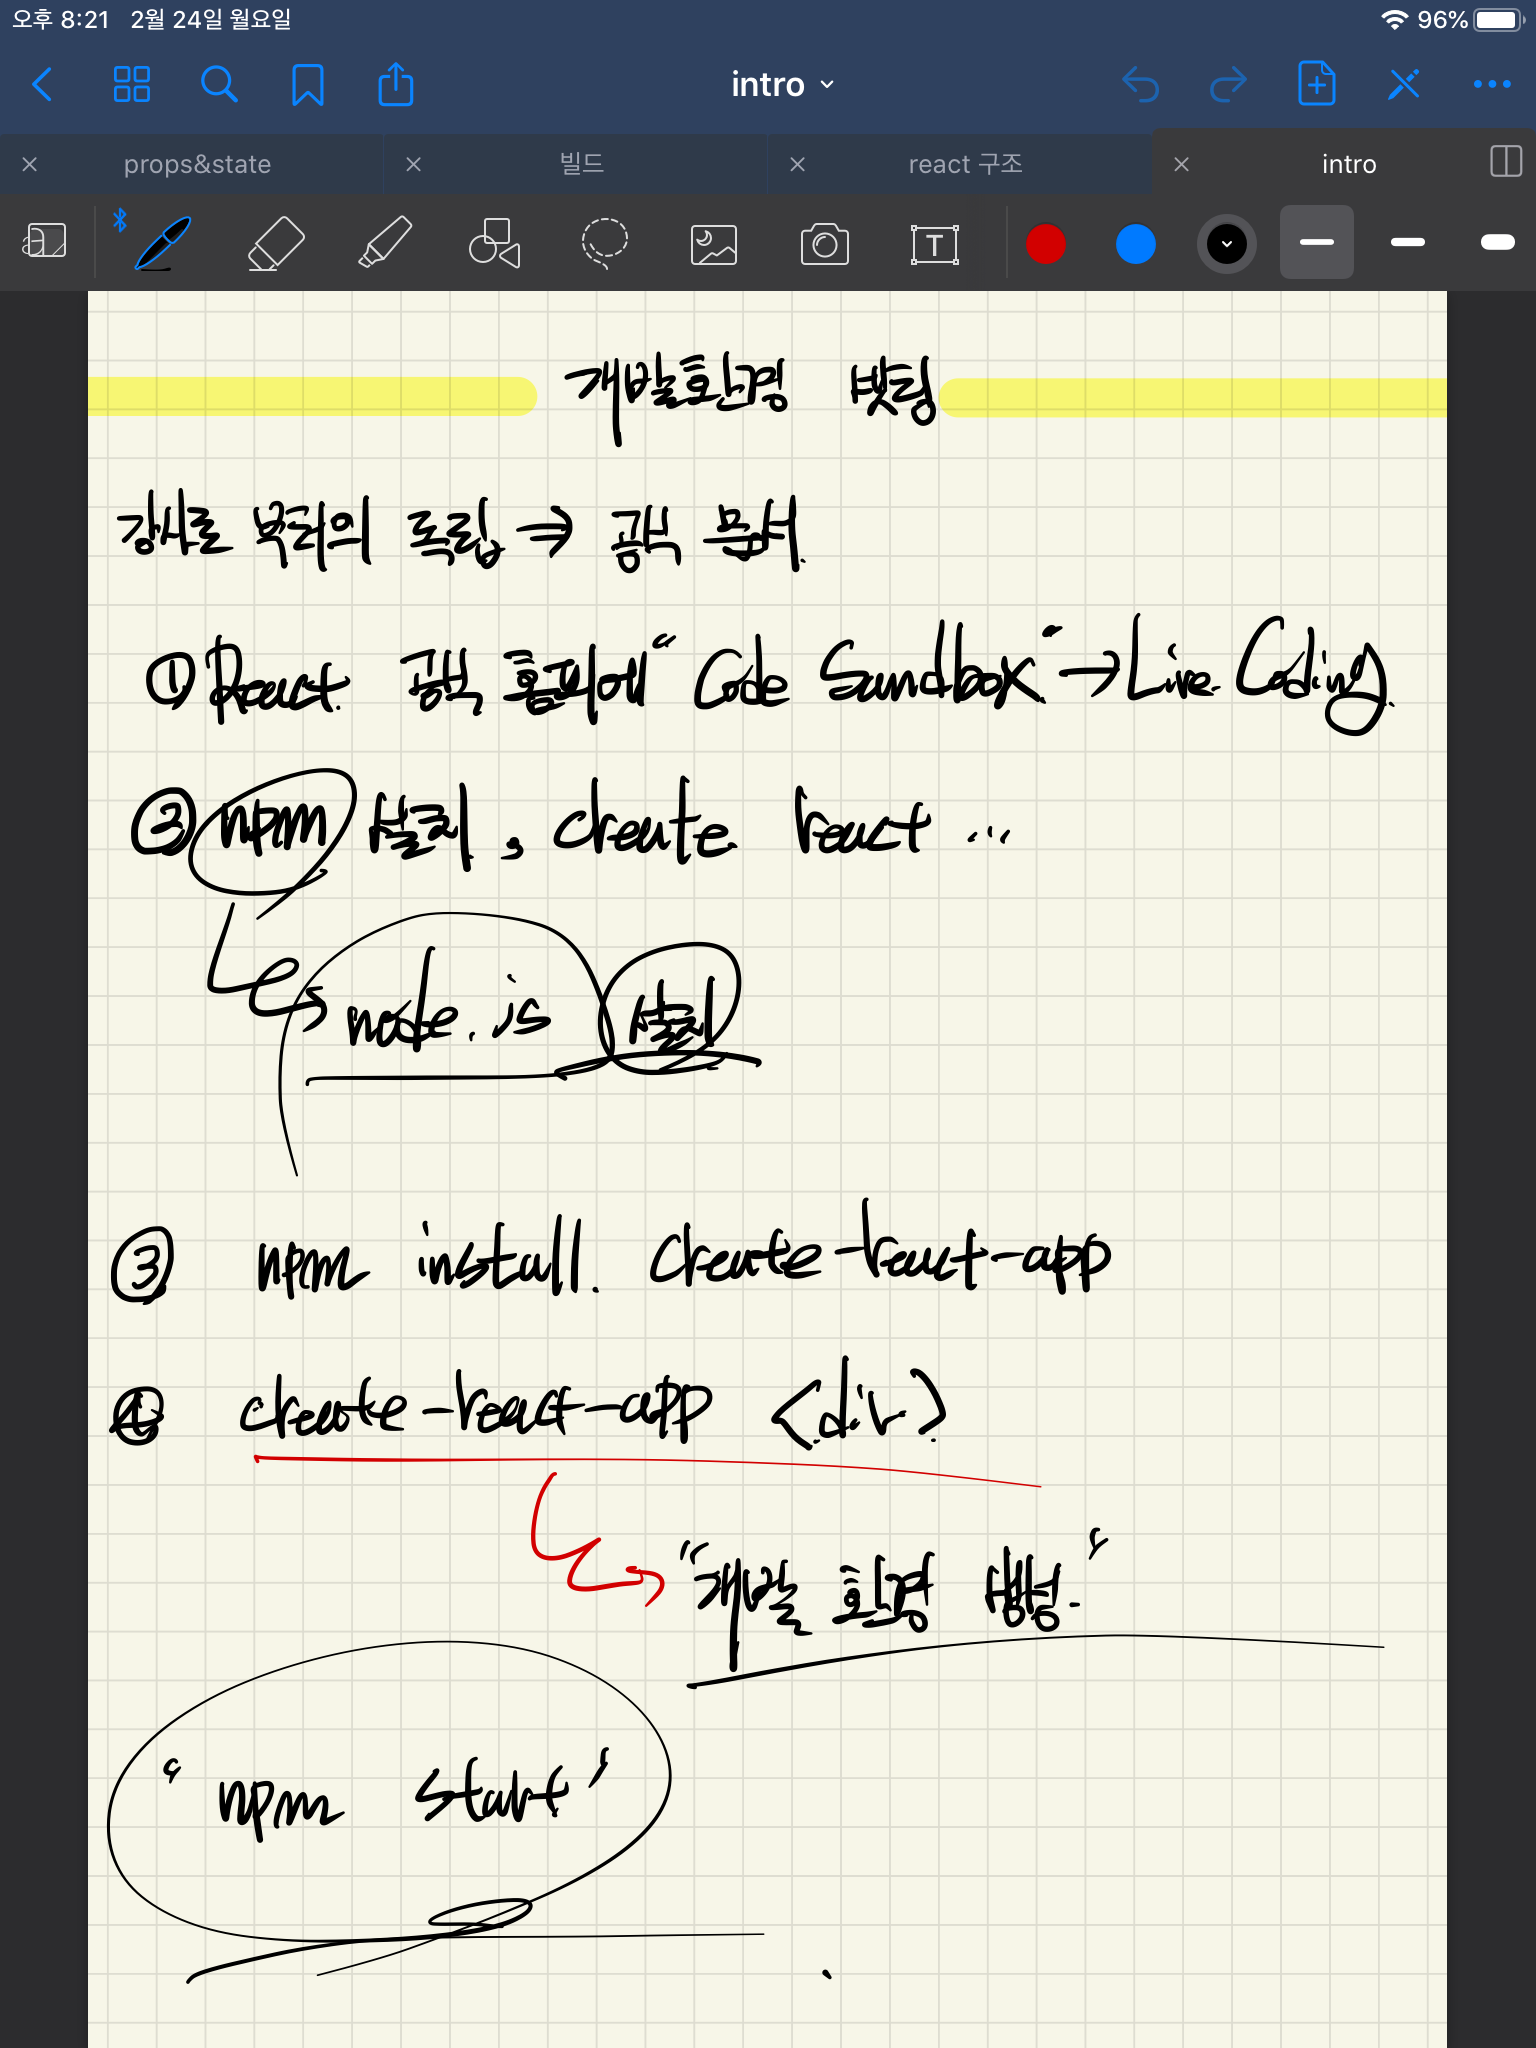 오후 8:21 2월 24일 월요일 96%
intro
props&state 빌드 react 구조 intro
개발환경 셋팅
강사로 부터의 독립 ⇒ 공식 문서.
① React 공식 홈피에 “Code Sandbox” → Live Coding.
② npm 설치, create react ...
node.js 설치
③ npm install create-react-app
④ create-react-app <dir>
"개발 환경 생성."
'npm start'